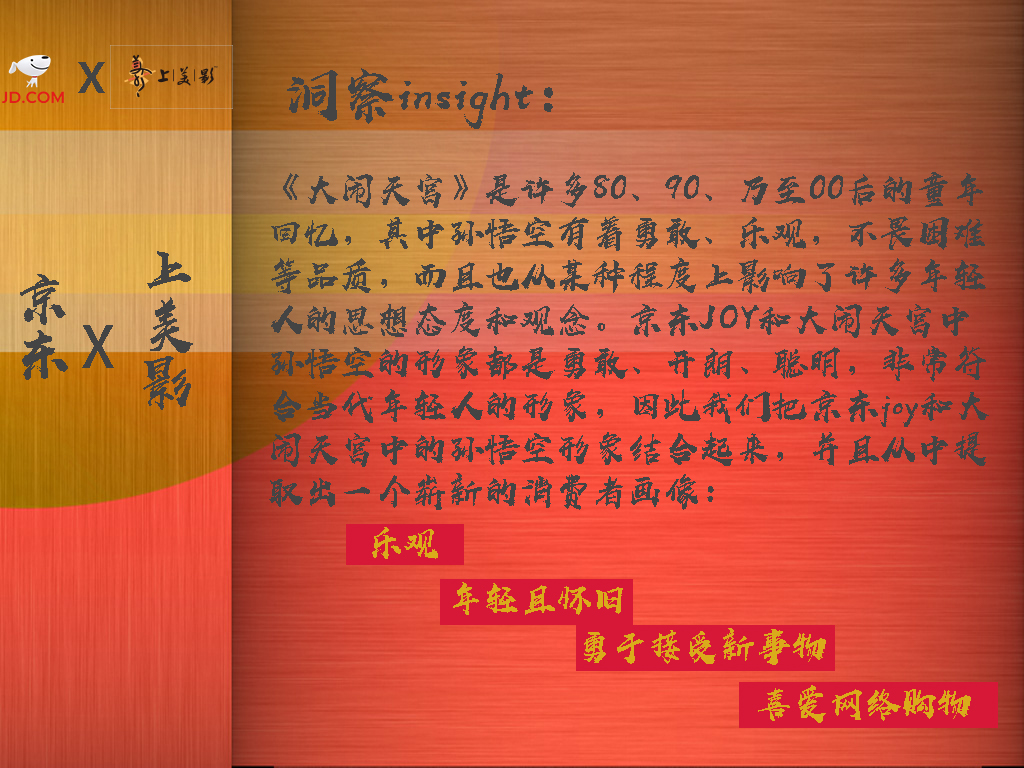 JD.COM
X
上美影
京东
X
上美影
洞察insight：
《大闹天宫》是许多80、90、乃至00后的童年
回忆，其中孙悟空有着勇敢、乐观，不畏困难
等品质，而且也从某种程度上影响了许多年轻
人的思想态度和观念。京东JOY和大闹天宫中
孙悟空的形象都是勇敢、开朗、聪明，非常符
合当代年轻人的形象，因此我们把京东joy和大
闹天宫中的孙悟空形象结合起来，并且从中提
取出一个崭新的消费者画像：
乐观
年轻且怀旧
勇于接受新事物
喜爱网络购物